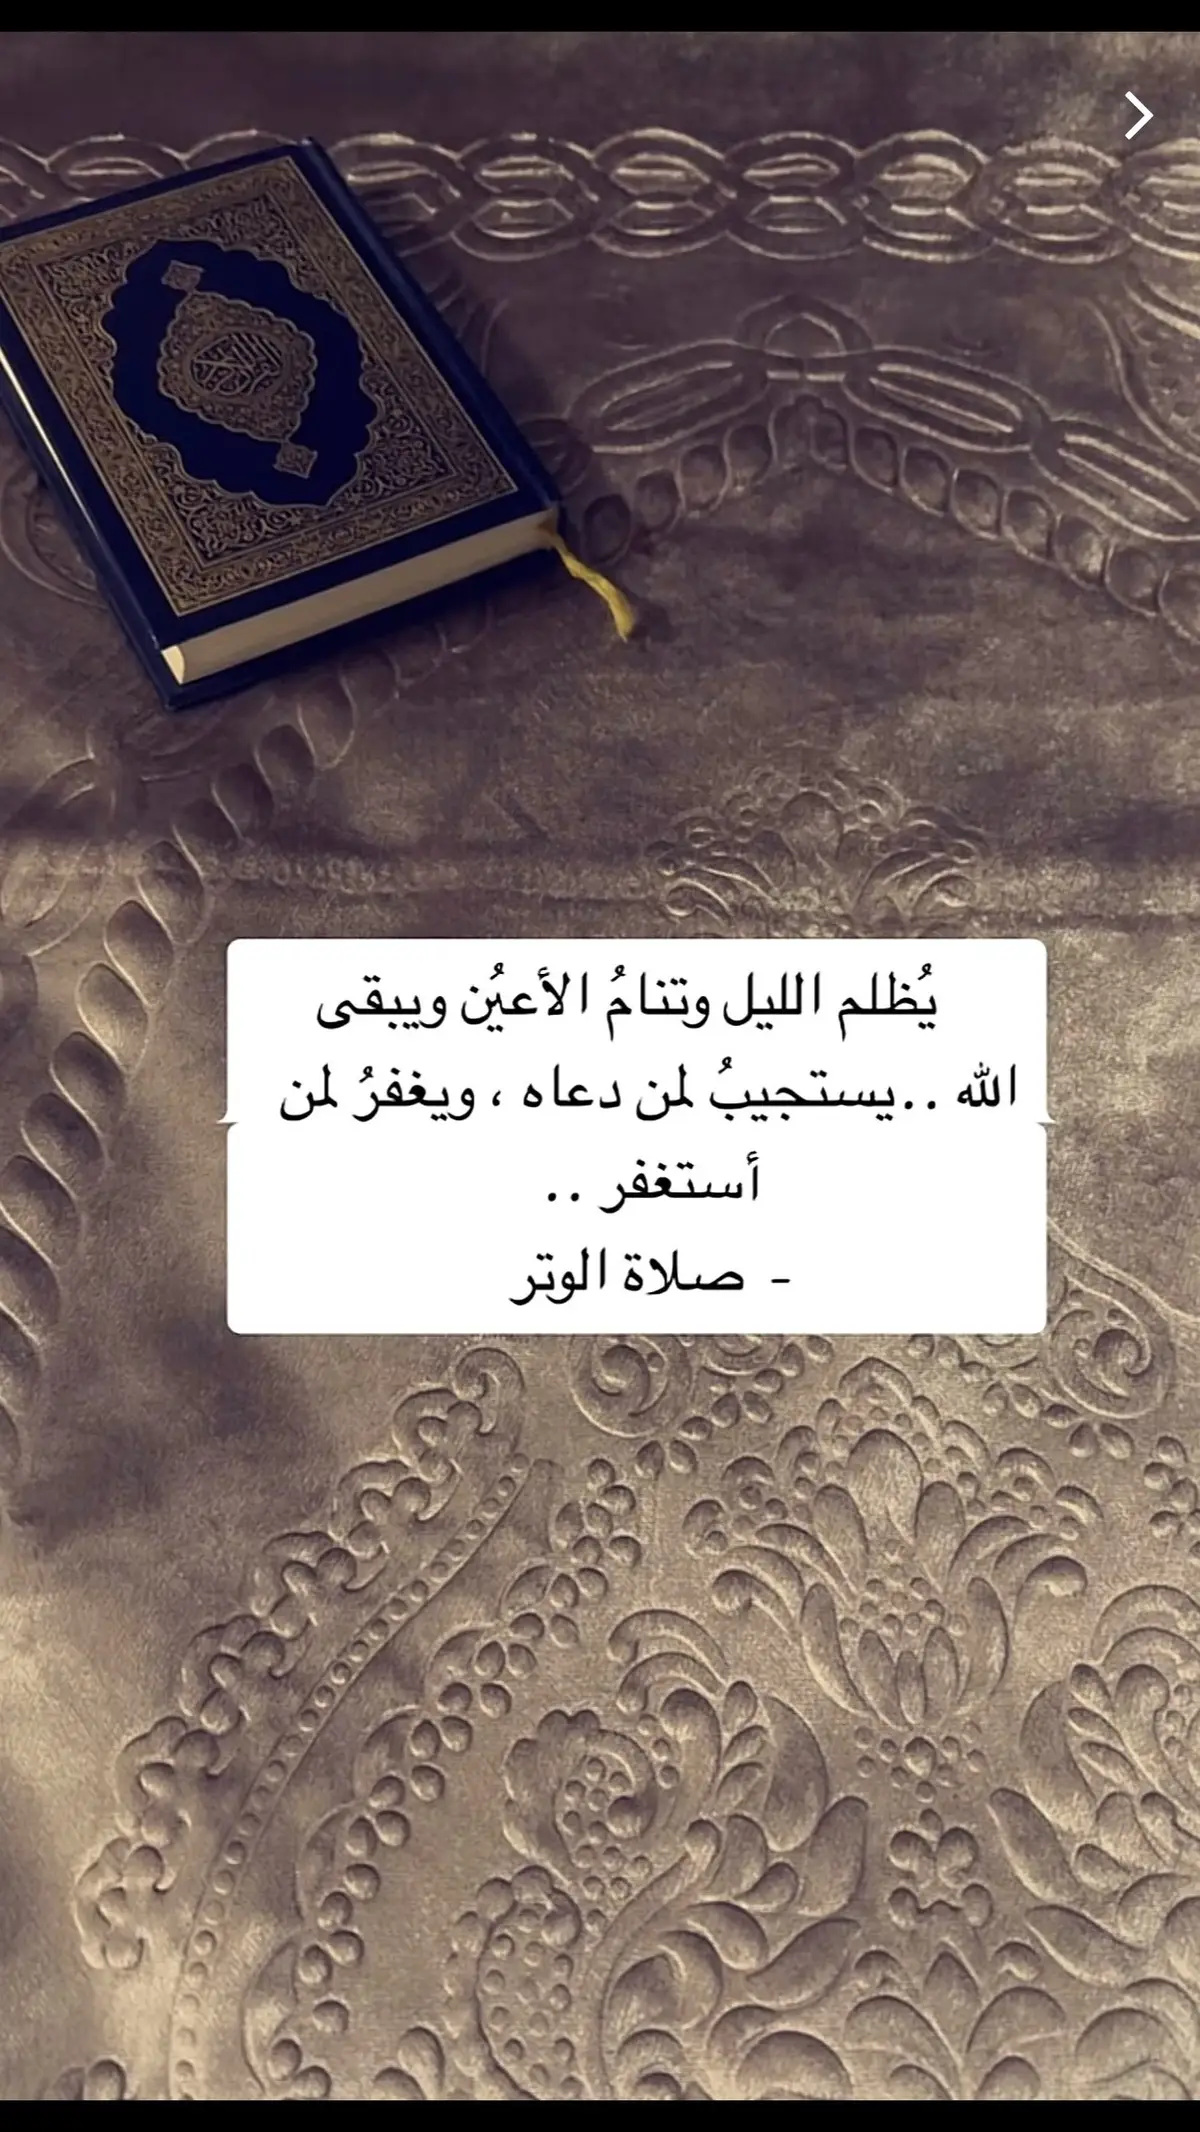 يُظلم الليل وتنامُ الأعيُن ويبقى
الله ..يستجيبُ لمن دعاه ، ويغفرُ لمن
أستغفر ..
- صلاة الوتر